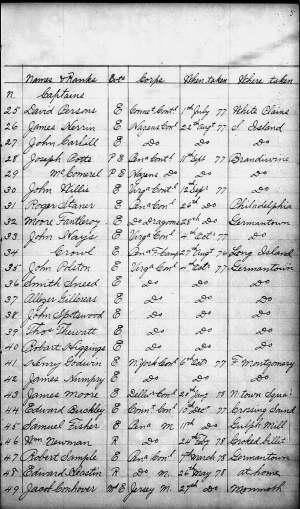 Names & Ranks Corps When taken Where taken
N Captains
25 David Persons E Connt. Contl. 1st July 77 White Plains
26 James Herrin E Hazens Contl. 22d Augt 77 S. Island
27 John Carlill E Do Do Do
28 Joseph Potts P E Pena Contl. 11th Sept 77 Brandiwine
29 Mc Connel P E Hazens Do Do Do
30 John Willis E Virga Contl. 12 Sept 77 Do
31 Roger Staner E Pena Contl. 26th Do Philadelphia
32 Moore Fantleroy E Do Dragoons 28th Do Germantown
33 John Hays E Virga Contl. 4th Octr 77 Do
34 Crowl E Pena F. Camp 27 Augt 76 Long Island
35 John Polston E Virga Contl. 4th Octr 77 Germantown
36 Smith Sneed E Do Do Do
37 E Do Do Do
38 John Spotswood E Do Do Do
39 Thos Thewatt E Do Do Do
40 Robert Higgings E Do Do Do
41 Henry Godwin E N. York Contl. 6th Octr 77 F. Montgomery
42 James Humphry E Do Do Do
43 James Moore E Della Contl. Augt 78 N. town Squa:
44 Edward Buckley E Connt Contl. 10 Decr 77 Crosing Sound
45 Samuel Fisher E Pena M. 11th Do Gulph Mill
46 Wm Newman R Do 24th Feby 78 Croked Billet
47 Robert Sample E Pena Contl. 7th March 78 Germantown
48 Edward R Do M. 26th May 78 at home
49 Jacob Conhover E Jersey M. 27th Do Monmoth